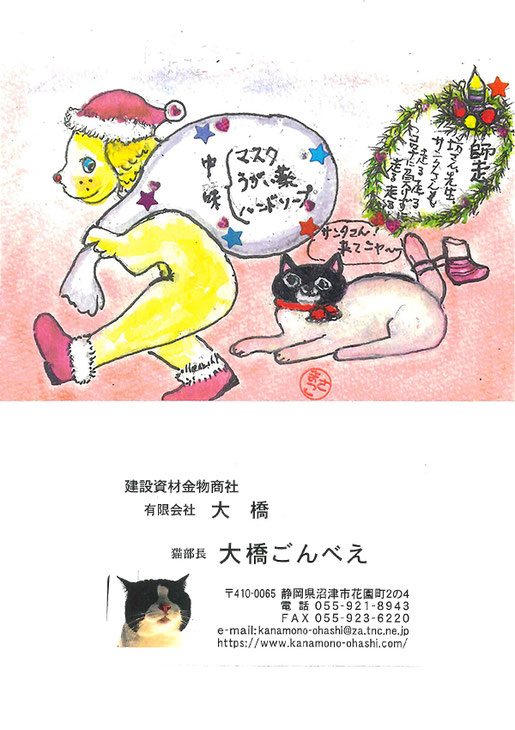 師走
サンタさんも
走る走る
走る走る
中味
マスク
うがい薬
ハンドソープ
サンタさん!
来てニャ〜
建設資材金物商社
有限会社 大橋
猫部長 大橋ごんべえ
〒410-0065 静岡県沼津市花園町2の4
電話 055-921-8943
FAX 055-923-6220
e-mail:kanamono-ohashi@za.tnc.ne.jp
https://www.kanamono-ohashi.com/